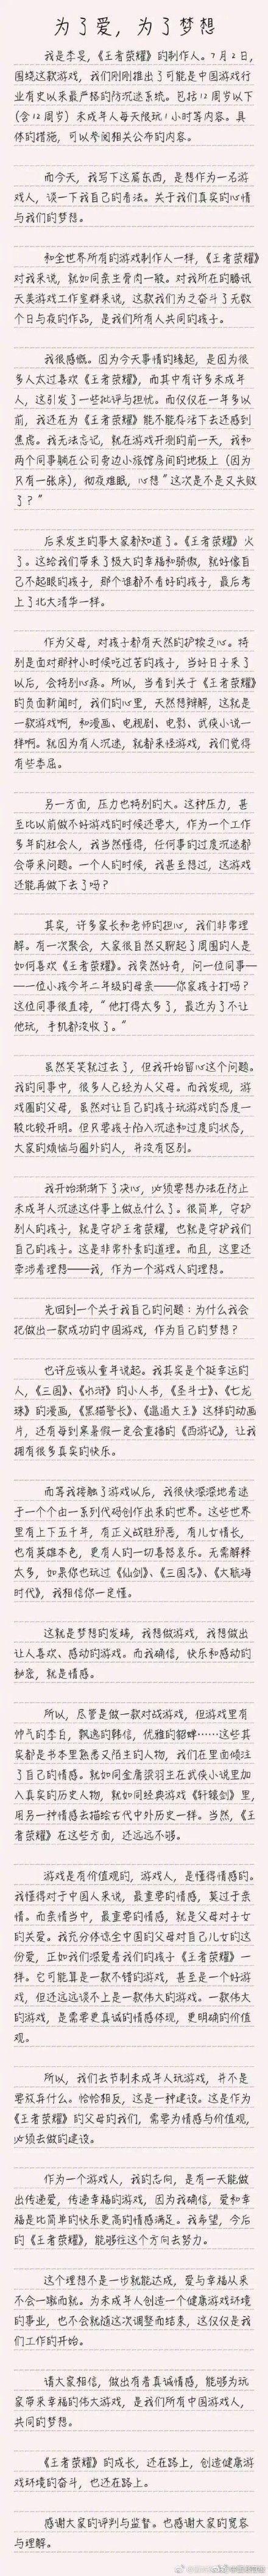 为了爱，为了梦想
我是李旻，《王者荣耀》的制作人。7月2日，
围绕这款游戏，我们刚刚推出了可能是中国游戏行
业有史以来最严格的防沉迷系统。包括12周岁以下
（含12周岁）未成年人每天限玩1小时等内容。具
体的措施，可以参阅相关公布的内容。
而今天，我写下这篇东西，是想作为一名游
戏人，谈一下我自己的看法。关于我们真实的心情
与我们的梦想。
和全世界所有的游戏制作人一样，《王者荣耀》
对我来说，就如同亲生骨肉一般。对我所在的腾讯
天美游戏工作室群来说，这款我们为之奋斗了无数
个日与夜的作品，是我们所有人共同的孩子。
我很感慨。因为今天事情的缘起，是因为很
多人太过喜欢《王者荣耀》，而其中有许多未成年
人，这引发了一些批评与担忧。而仅仅在一年多以
前，我还在为《王者荣耀》能不能存活下去还感到
焦虑。我无法忘记，就在游戏开测的前一天，我和
两个同事躺在公司旁边小旅馆房间的地板上（因为
只有一张床），彻夜难眠，心想“这次是不是又失败
了？”
后来发生的事大家都知道了。《王者荣耀》火
了。这给我们带来了极大的幸福和骄傲，就好像自
己不起眼的孩子，那个谁都不看好的孩子，最后考
上了北大清华一样。
作为父母，对孩子都有天然的护犊之心。特
别是面对那种小时候吃过苦的孩子，当好日子来了
以后，会特别心疼。所以，当看到关于《王者荣耀》
的负面新闻时，我们的心里，天然想辩解，这就是
一款游戏啊，和漫画、电视剧、电影、武侠小说一
样啊。就因为有人沉迷，就都来怪游戏，我们觉得
有些委屈。
另一方面，压力也特别的大。这种压力，甚
至比以前做不好游戏的时候还要大，作为一个工作
多年的社会人，我当然懂得，任何事的过度沉迷都
会带来问题。一个人的时候，我甚至想过，这游戏
还能再做下去了吗？
其实，许多家长和老师的担心，我们非常理
解。有一次聚会，大家很自然又聊起了周围的人是
如何喜欢《王者荣耀》。我突然好奇，问一位同事—
—一位小孩今年二年级的母亲——你家孩子打吗？
这位同事很直接，“他打得太多了，最近为了不让
他玩，手机都没收了。”
虽然笑笑就过去了，但我开始留心这个问题。
我的同事中，很多人已经为人父母。而我发现，游
戏圈的父母，虽然对让自己的孩子玩游戏的态度一
般比较开明。但只要孩子陷入沉迷和过度的状态，
大家的烦恼与圈外的人，并没有区别。
我开始渐渐下了决心，必须要想办法在防止
未成年人沉迷这件事上做点什么了。很简单，守护
别人的孩子，就是守护王者荣耀，也就是守护我们
自己的孩子。这是非常朴素的道理。而且，这里还
牵涉着理想——我，作为一个游戏人的理想。
先回到一个关于我自己的问题：为什么我会
把做出一款成功的中国游戏，作为自己的梦想？
也许应该从童年说起。我其实是个挺幸运的
人，《三国》、《水浒》的小人书，《圣斗士》、《七龙
珠》的漫画，《黑猫警长》、《邋遢大王》这样的动画
片，还有每到寒暑假一定会重播的《西游记》，让我
拥有很多真实的快乐。
而等我接触了游戏以后，我很快深深地着迷
于一个个由一系列代码创作出来的世界。这些世界
里有上下五千年，有正义战胜邪恶，有儿女情长，
也有英雄本色，更有人的一切喜怒哀乐。无需解释
太多，如果你也玩过《仙剑》、《三国志》、《大航海
时代》，我相信你一定懂。
这就是梦想的发端，我想做游戏，我想做出
让人喜欢、感动的游戏。而我确信，快乐和感动的
秘密，就是情感。
所以，尽管是做一款对战游戏，但游戏里有
帅气的李白，飘逸的韩信，优雅的貂蝉……这些其
实都是书本里熟悉又陌生的人物，我们在里面倾注
了自己的情感。就如同金庸梁羽生在武侠小说里加
入真实的历史人物，就如同经典游戏《轩辕剑》里，
用另一种情感去描绘古代中外历史一样。当然，《王
者荣耀》在这些方面，还远远不够。
游戏是有价值观的，游戏人，是懂得情感的。
我懂得对于中国人来说，最重要的情感，莫过于亲
情。而亲情当中，最重要的情感，就是父母对子女
的关爱。我充分体谅全中国的父母对自己儿女的这
份爱，正如我们深爱着我们的孩子《王者荣耀》一
样。它可能算是一款不错的游戏，甚至是一个好游
戏，但还远远谈不上是一款伟大的游戏。一款伟大
的游戏，是需要更真诚的情感体现，更明确的价值
观。
所以，我们去节制未成年人玩游戏，并不是
要放弃什么。恰恰相反，这是一种建设。这是作为
《王者荣耀》的父母的我们，需要为情感与价值观，
必须去做的建设。
作为一个游戏人，我的志向，是有一天能做
出传递爱，传递幸福的游戏，因为我确信，爱和幸
福是比简单的快乐更高的情感满足。我希望，今后
的《王者荣耀》，能够往这个方向去努力。
这个理想不是一步就能达成，爱与幸福从来
不会一蹴而就。为未成年人创造一个健康游戏环境
的事业，也不会就随这次调整而结束，这仅仅是我
们工作的开始。
请大家相信，做出有着真诚情感，能够为玩
家带来幸福的伟大游戏，是我们所有中国游戏人，
共同的梦想。
《王者荣耀》的成长，还在路上，创造健康游
戏环境的奋斗，也还在路上。
感谢大家的评判与监督。也感谢大家的宽容
与理解。